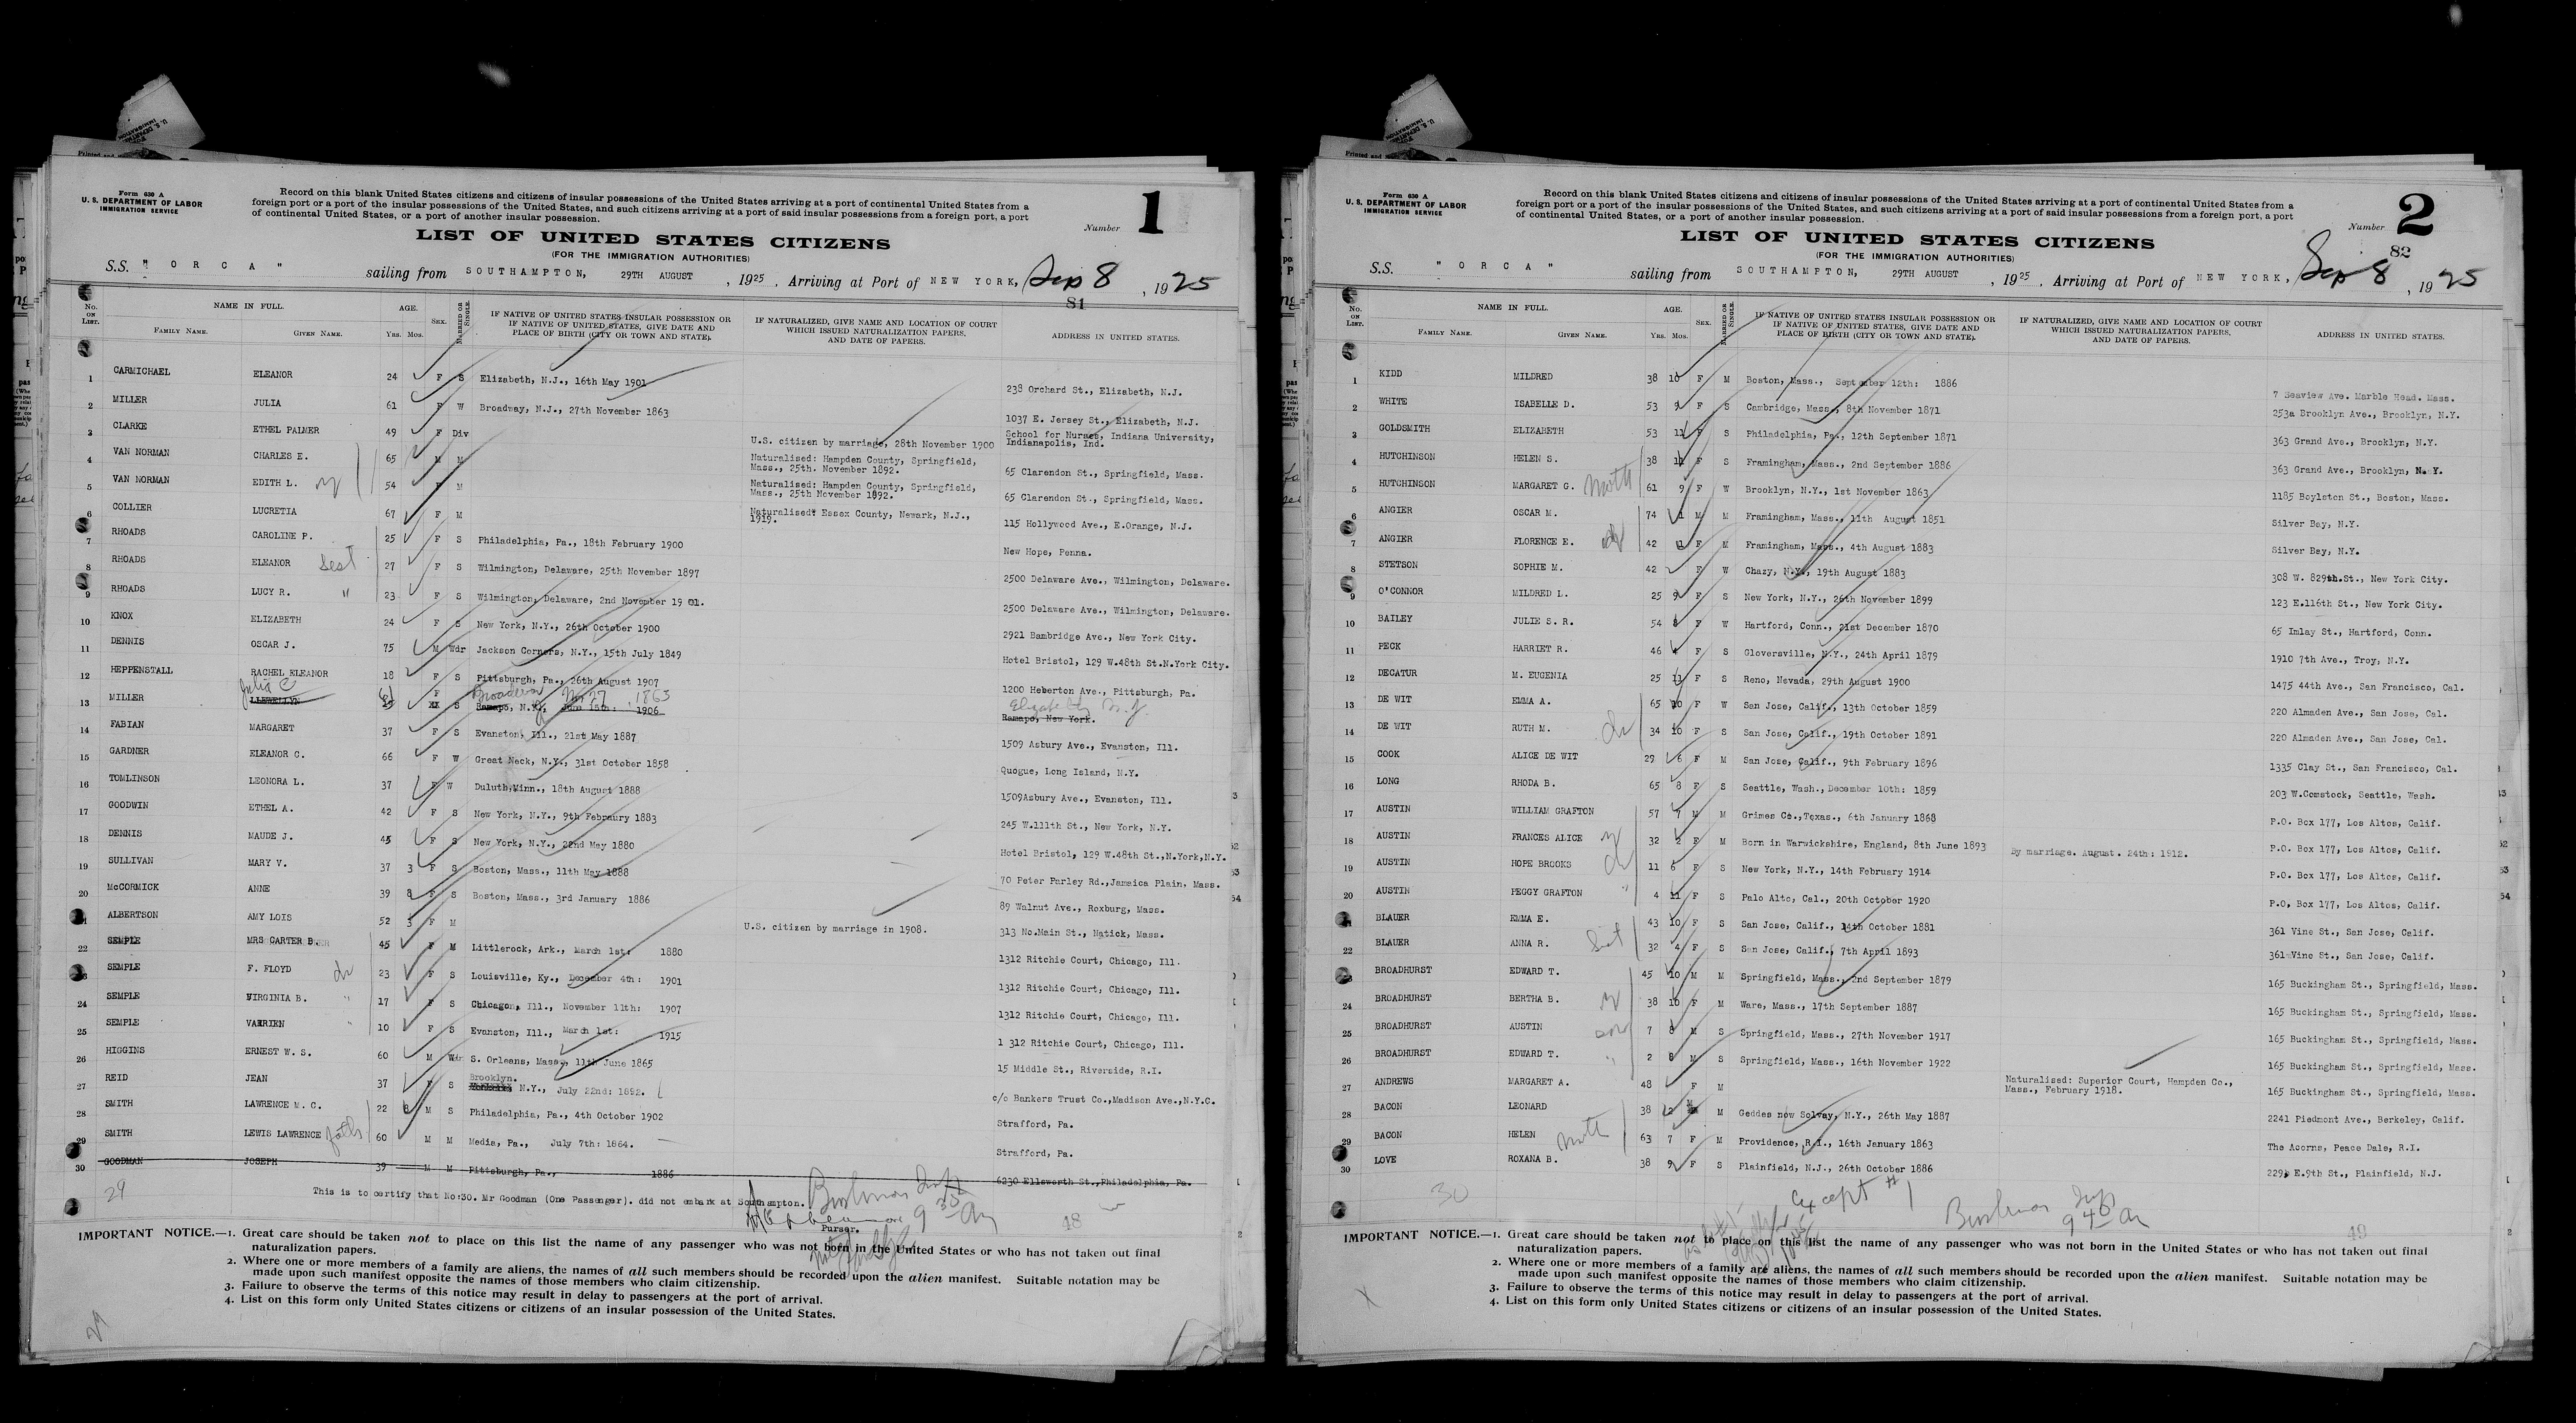 Form 630 A
U. S. DEPARTMENT OF LABOR
IMMIGRATION SERVICE
Record on this blank United States citizens and citizens of insular possessions of the United States arriving at a port of continental United States from a
foreign port or a port of the insular possessions of the United States, and such citizens arriving at a port of said insular possessions from a foreign port, a port
of continental United States, or a port of another insular possession.
Number 1
LIST OF UNITED STATES CITIZENS
(FOR THE IMMIGRATION AUTHORITIES)
S.S. " O R C A " sailing from SOUTHAMPTON, 29TH AUGUST , 1925 , Arriving at Port of NEW YORK, Sep 8 , 1925
81
No. ON LIST. NAME IN FULL. AGE. SEX. MARRIED OR SINGLE. IF NATIVE OF UNITED STATES INSULAR POSSESSION OR IF NATIVE OF UNITED STATES, GIVE DATE AND PLACE OF BIRTH (CITY OR TOWN AND STATE). IF NATURALIZED, GIVE NAME AND LOCATION OF COURT WHICH ISSUED NATURALIZATION PAPERS, AND DATE OF PAPERS. ADDRESS IN UNITED STATES.
FAMILY NAME. GIVEN NAME. Yrs. Mos.
1 CARMICHAEL ELEANOR 24 F S Elizabeth, N.J., 16th May 1901 238 Orchard St., Elizabeth, N.J.
2 MILLER JULIA 61 F W Broadway, N.J., 27th November 1863 1037 E. Jersey St., Elizabeth, N.J.
3 CLARKE ETHEL PALMER 49 F Div U.S. citizen by marriage, 28th November 1900 School for Nurses, Indiana University, Indianapolis, Ind.
4 VAN NORMAN CHARLES E. 65 M M Naturalised: Hampden County, Springfield, Mass., 25th. November 1892. 65 Clarendon St., Springfield, Mass.
5 VAN NORMAN EDITH L. 54 F M Naturalised: Hampden County, Springfield, Mass., 25th November 1892. 65 Clarendon St., Springfield, Mass.
6 COLLIER LUCRETIA 67 F M Naturalised: Essex County, Newark, N.J., 1919. 115 Hollywood Ave., E.Orange, N.J.
7 RHOADS CAROLINE P. 25 F S Philadelphia, Pa., 18th February 1900 New Hope, Penna.
8 RHOADS ELEANOR Sist 27 F S Wilmington, Delaware, 25th November 1897 2500 Delaware Ave., Wilmington, Delaware.
9 RHOADS LUCY R. " 23 F S Wilmington, Delaware, 2nd November 19 01. 2500 Delaware Ave., Wilmington, Delaware.
10 KNOX ELIZABETH 24 F S New York, N.Y., 26th October 1900 2921 Bambridge Ave., New York City.
11 DENNIS OSCAR J. 75 M Wdr Jackson Corners, N.Y., 15th July 1849 Hotel Bristol, 129 W.48th St.N.York City.
12 HEPPENSTALL RACHEL ELEANOR 18 F S Pittsburgh, Pa., 26th August 1907 1200 Heberton Ave., Pittsburgh, Pa.
Julia C 61 F Broadway Nov 27 1863 Elizabeth N.J.
13 MILLER LLEWELLYN S Ramapo, N.Y., June 15th: 1906 Ramapo, New York.
14 FABIAN MARGARET 37 F S Evanston, Ill., 21st May 1887 1509 Asbury Ave., Evanston, Ill.
15 GARDNER ELEANOR C. 66 F W Great Neck, N.Y., 31st October 1858 Quogue, Long Island, N.Y.
16 TOMLINSON LEONORA L. 37 F W Duluth,Minn., 18th August 1888 1509Asbury Ave., Evanston, Ill.
17 GOODWIN ETHEL A. 42 F S New York, N.Y., 9th Febraury 1883 245 W.111th St., New York, N.Y.
18 DENNIS MAUDE J. 45 F S New York, N.Y., 22nd May 1880 Hotel Bristol, 129 W.48th St.,N.York,N.Y.
19 SULLIVAN MARY V. 37 3 F S Boston, Mass., 11th May 1888 70 Peter Parley Rd.,Jamaica Plain, Mass.
20 McCORMICK ANNE 39 8 F S Boston, Mass., 3rd January 1886 89 Walnut Ave., Roxburg, Mass.
21 ALBERTSON AMY LOIS 52 3 F M U.S. citizen by marriage in 1908. 313 No.Main St., Natick, Mass.
22 SEMPLE MRS CARTER B. 45 F M Littlerock, Ark., March 1st: 1880 1312 Ritchie Court, Chicago, Ill.
23 SEMPLE F. FLOYD 23 F S Louisville, Ky., December 4th: 1901 1312 Ritchie Court, Chicago, Ill.
24 SEMPLE VIRGINIA B. " 17 F S Chicago, Ill., November 11th: 1907 1312 Ritchie Court, Chicago, Ill.
25 SEMPLE " 10 F S Evanston, Ill., March 1st: 1915 1 312 Ritchie Court, Chicago, Ill.
26 HIGGINS ERNEST W. S. 60 M Wdr S. Orleans, Mass., 11th June 1865 15 Middle St., Riverside, R.I.
27 REID JEAN 37 F S Brooklyn. N.Y., July 22nd: 1892. c/o Bankers Trust Co.,Madison Ave.,N.Y.C.
28 SMITH LAWRENCE M. C. 22 8 M S Philadelphia, Pa., 4th October 1902 Strafford, Pa.
29 SMITH LEWIS LAWRENCE fath 60 M M Media, Pa., July 7th: 1864. Strafford, Pa.
30 GOODMAN JOSEPH 39 M M Pittsburgh, Pa., 1886 6230 Ellsworth St.,Philadelphia, Pa.
29 This is to certify that No:30. Mr Goodman (One Passenger). did not embark at Southampton.
Purser.
48
IMPORTANT NOTICE.—1. Great care should be taken not to place on this list the name of any passenger who was not born in the United States or who has not taken out final
naturalization papers.
2. Where one or more members of a family are aliens, the names of all such members should be recorded upon the alien manifest. Suitable notation may be
made upon such manifest opposite the names of those members who claim citizenship.
3. Failure to observe the terms of this notice may result in delay to passengers at the port of arrival.
4. List on this form only United States citizens or citizens of an insular possession of the United States.
Form 630 A
U. S. DEPARTMENT OF LABOR
IMMIGRATION SERVICE
Record on this blank United States citizens and citizens of insular possessions of the United States arriving at a port of continental United States from a
foreign port or a port of the insular possessions of the United States, and such citizens arriving at a port of said insular possessions from a foreign port, a port
of continental United States, or a port of another insular possession.
Number 2
82
LIST OF UNITED STATES CITIZENS
(FOR THE IMMIGRATION AUTHORITIES)
S.S. " O R C A " sailing from SOUTHAMPTON, 29TH AUGUST , 1925 , Arriving at Port of NEW YORK, Sep 8 , 1925
No. ON LIST. NAME IN FULL. AGE. SEX. MARRIED OR SINGLE. IF NATIVE OF UNITED STATES INSULAR POSSESSION OR IF NATIVE OF UNITED STATES, GIVE DATE AND PLACE OF BIRTH (CITY OR TOWN AND STATE). IF NATURALIZED, GIVE NAME AND LOCATION OF COURT WHICH ISSUED NATURALIZATION PAPERS, AND DATE OF PAPERS. ADDRESS IN UNITED STATES.
FAMILY NAME. GIVEN NAME. Yrs. Mos.
1 KIDD MILDRED 38 10 F M Boston, Mass., September 12th: 1886 7 Seaview Ave. Marble Head. Mass.
2 WHITE ISABELLE D. 53 9 F S Cambridge, Mass., 8th November 1871 253a Brooklyn Ave., Brooklyn, N.Y.
3 GOLDSMITH ELIZABETH 53 11 F S Philadelphia, Pa., 12th September 1871 363 Grand Ave., Brooklyn, N.Y.
4 HUTCHINSON HELEN S. 38 11 F S Framingham, Mass., 2nd September 1886 363 Grand Ave., Brooklyn, N.Y.
5 HUTCHINSON MARGARET G. Moth 61 9 F W Brooklyn, N.Y., 1st November 1863 1185 Boylston St., Boston, Mass.
6 ANGIER OSCAR M. 74 1 M M Framingham, Mass., 11th August 1851 Silver Bay, N.Y.
7 ANGIER FLORENCE E. 42 F M Framingham, Mass., 4th August 1883 Silver Bay, N.Y.
8 STETSON SOPHIE M. 42 F W Chazy, N.Y., 19th August 1883 308 W. 829th.St., New York City.
9 O'CONNOR MILDRED L. 25 9 F S New York, N.Y., 26th November 1899 123 E.116th St., New York City.
10 BAILEY JULIE S. R. 54 8 F W Hartford, Conn., 21st December 1870 65 Imlay St., Hartford, Conn.
11 PECK HARRIET R. 46 4 F S Gloversville, N.Y., 24th April 1879 1910 7th Ave., Troy, N.Y.
12 DECATUR M. EUGENIA 25 F S Reno, Nevada, 29th August 1900 1475 44th Ave., San Francisco, Cal.
13 DE WIT EMMA A. 65 10 F W San Jose, Calif., 13th October 1859 220 Almaden Ave., San Jose, Cal.
14 DE WIT RUTH M. 34 10 F S San Jose, Calif., 19th October 1891 220 Almaden Ave., San Jose, Cal.
15 COOK ALICE DE WIT 29 6 F M San Jose, Calif., 9th February 1896 1335 Clay St., San Francisco, Cal.
16 LONG RHODA B. 65 8 F S Seattle, Wash., December 10th: 1859 203 W.Comstock, Seattle, Wash.
17 AUSTIN WILLIAM GRAFTON 57 7 M M Grimes Co.,Texas., 6th January 1868 P.O. Box 177, Los Altos, Calif.
18 AUSTIN FRANCES ALICE 32 2 F M Born in Warwickshire, England, 8th June 1893 By marriage. August. 24th: 1912. P.O. Box 177, Los Altos, Calif.
19 AUSTIN HOPE BROOKS 11 6 F S New York, N.Y., 14th February 1914 P.O. Box 177, Los Altos, Calif.
20 AUSTIN PEGGY GRAFTON " 4 11 F S Palo Alto, Cal., 20th October 1920 P.O. Box 177, Los Altos, Calif.
21 BLAUER EMMA E. 43 10 F S San Jose, Calif., 14th October 1881 361 Vine St., San Jose, Calif.
22 BLAUER ANNA R. Sist 32 4 F S San Jose, Calif., 7th April 1893 361 Vine St., San Jose, Calif.
23 BROADHURST EDWARD T. 45 10 M M Springfield, Mass., 2nd September 1879 165 Buckingham St., Springfield, Mass.
24 BROADHURST BERTHA B. 38 10 F M Ware, Mass., 17th September 1887 165 Buckingham St., Springfield, Mass.
25 BROADHURST AUSTIN son 7 8 M S Springfield, Mass., 27th November 1917 165 Buckingham St., Springfield, Mass.
26 BROADHURST EDWARD T. " 2 8 M S Springfield, Mass., 16th November 1922 165 Buckingham St., Springfield, Mass.
27 ANDREWS MARGARET A. 48 F M Naturalised: Superior Court, Hampden Co., Mass., February 1918. 165 Buckingham St., Springfield, Mass.
28 BACON LEONARD 38 2 M Geddes now Solvay, N.Y., 26th May 1887 2241 Piedmont Ave., Berkeley, Calif.
29 BACON HELEN Moth 63 7 F M Providence, R.I., 16th January 1863 The Acorns, Peace Dale, R.I.
30 LOVE ROXANA B. 38 9 F S Plainfield, N.J., 26th October 1886 229 E.9th St., Plainfield, N.J.
30 Except # 1
49
IMPORTANT NOTICE.—1. Great care should be taken not to place on this list the name of any passenger who was not born in the United States or who has not taken out final
naturalization papers.
2. Where one or more members of a family are aliens, the names of all such members should be recorded upon the alien manifest. Suitable notation may be
made upon such manifest opposite the names of those members who claim citizenship.
3. Failure to observe the terms of this notice may result in delay to passengers at the port of arrival.
4. List on this form only United States citizens or citizens of an insular possession of the United States.